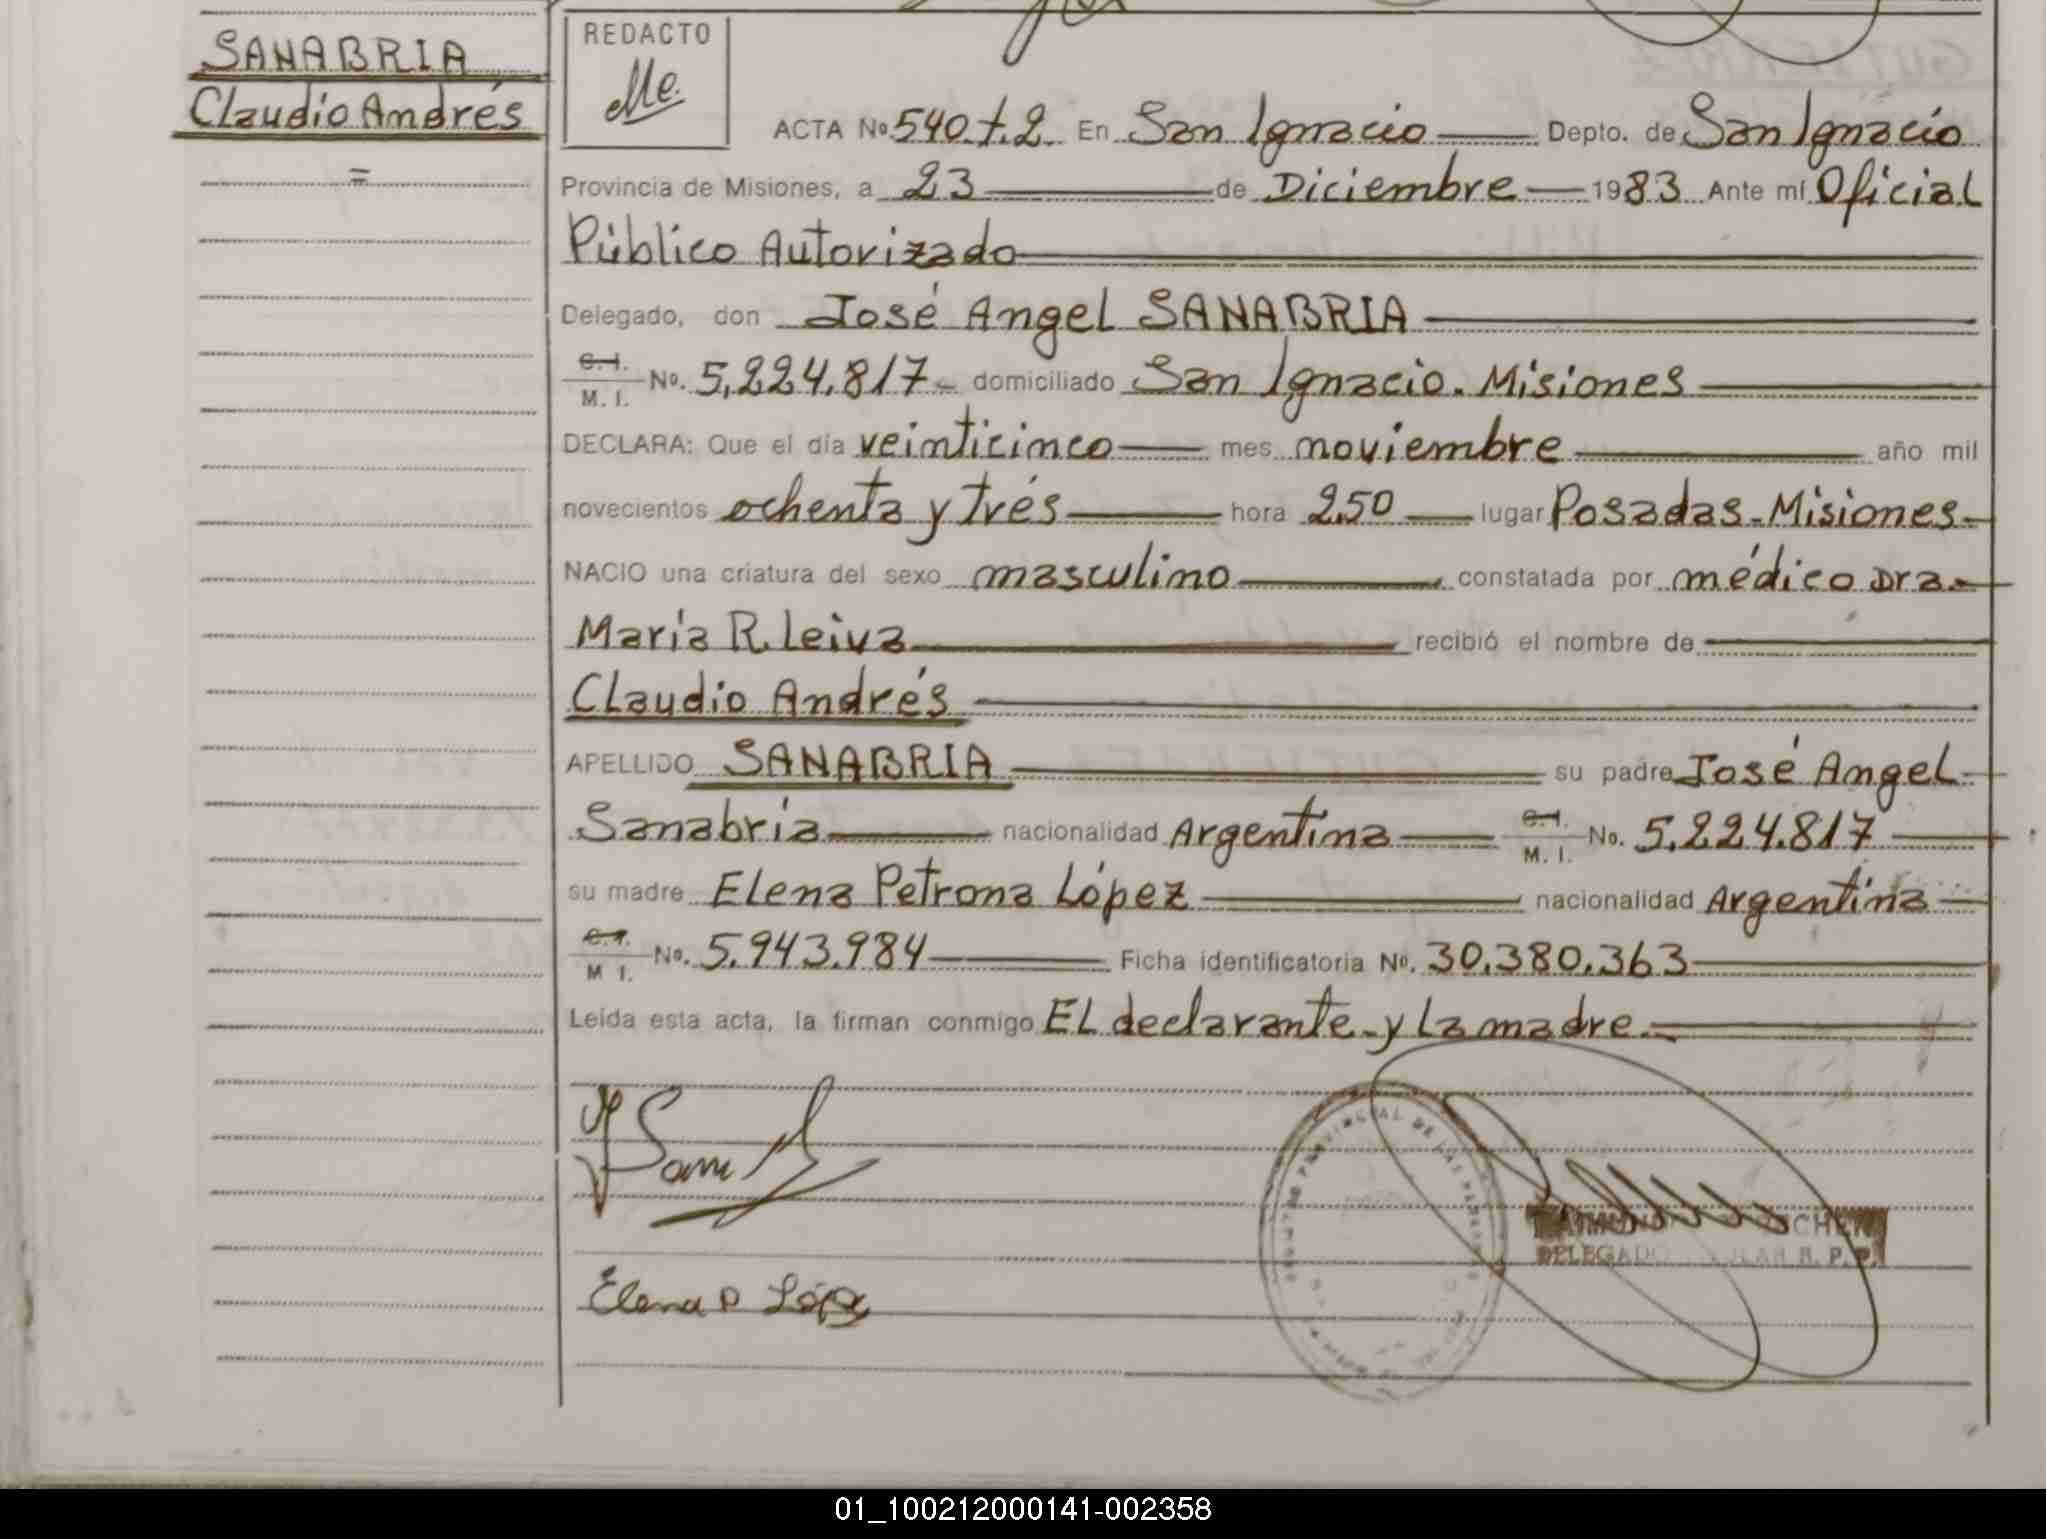 SANABRIA
Claudio Andrés
=
REDACTO
ACTA No 540 t. 2. En San Ignacio Depto. de San Ignacio
Provincia de Misiones, a 23 de Diciembre 1983 Ante mí Oficial
Público Autorizado
Delegado, don José Angel SANABRIA
C.I. M.I. No. 5.224.817 domiciliado San Ignacio. Misiones
DECLARA: Que el día veinticinco mes noviembre año mil
novecientos ochenta y trés hora 2,50 lugar Posadas. Misiones
NACIO una criatura del sexo masculino constatada por médico Dra.
María R. Leiva recibió el nombre de
Claudio Andrés
APELLIDO SANABRIA su padre José Angel
Sanabria nacionalidad Argentina C.I. M.I. No. 5.224.817
su madre Elena Petrona López nacionalidad Argentina
C.I. M I. No. 5.943.984 Ficha identificatoria No. 30.380.363
Leída esta acta, la firman conmigo El declarante y La madre.
DELEGADO R. P. P.
Elena P López
01_100212000141-002358